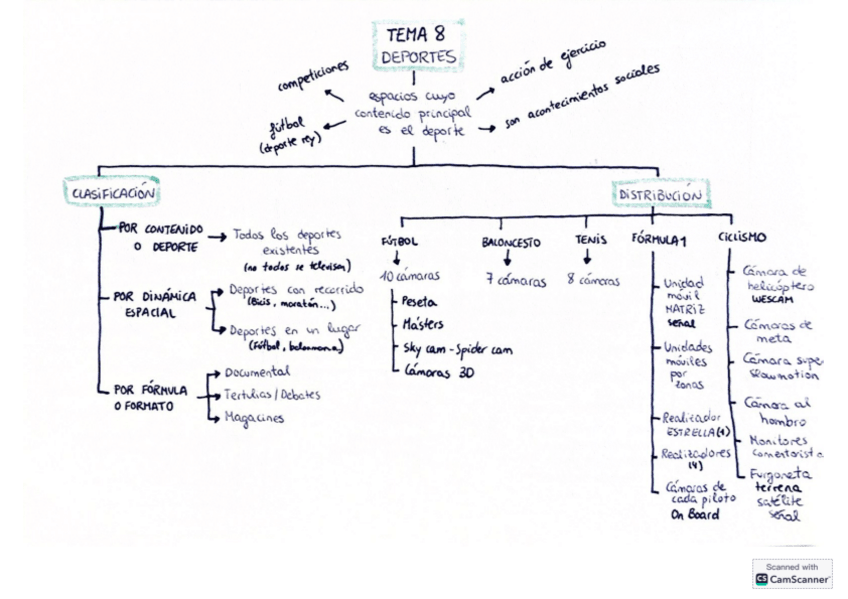 TEMA 8
DEPORTES
competiciones
acción de ejercicio
espacios cuyo
contenido principal
es el deporte
fútbol
(deporte rey)
son acontecimientos sociales
CLASIFICACIÓN
DISTRIBUCIÓN
POR CONTENIDO
O DEPORTE
Todos los deportes
existentes
(no todos se televisan)
POR DINÁMICA
ESPACIAL
Deportes con recorrido
(Bicis, maratón...)
Deportes en un lugar
(Fútbol, balonmano)
POR FÓRMULA
O FORMATO
Documental
Tertulias/Debates
Magacines
FÚTBOL
10 cámaras
Peseta
Másters
Sky cam - Spider cam
Cámaras 3D
BALONCESTO
7 cámaras
TENIS
8 cámaras
FÓRMULA 1
Unidad
móvil
MATRIZ
señal
Unidades
móviles
por
zonas
Realizador
ESTRELLA (1)
Realizadores
(4)
Cámaras de
cada piloto
On Board
CICLISMO
Cámara de
helicóptero
WESCAM
Cámaras de
meta
Cámara supe
slowmotion
Cámara al
hombro
Monitores
comentarista
Furgoneta
terrena
satélite
señal
Scanned with
CS CamScanner